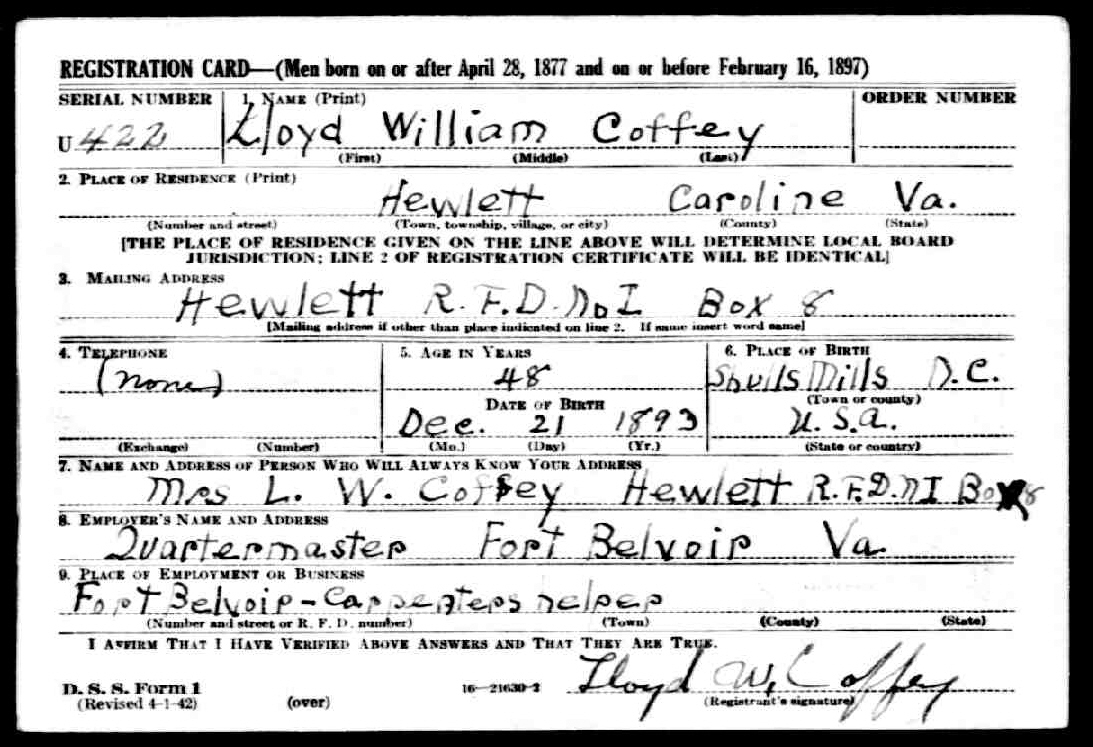 REGISTRATION CARD—(Men born on or after April 28, 1877 and on or before February 16, 1897)
SERIAL NUMBER 1. NAME (Print) ORDER NUMBER
U 422 Lloyd William Coffey
(First) (Middle) (Last)
2. PLACE OF RESIDENCE (Print)
Hewlett Caroline Va.
(Number and street) (Town, township, village, or city) (County) (State)
[THE PLACE OF RESIDENCE GIVEN ON THE LINE ABOVE WILL DETERMINE LOCAL BOARD
JURISDICTION; LINE 2 OF REGISTRATION CERTIFICATE WILL BE IDENTICAL]
3. MAILING ADDRESS
Hewlett R.F.D. No I Box 8
[Mailing address if other than place indicated on line 2. If same insert word same]
4. TELEPHONE 5. AGE IN YEARS 6. PLACE OF BIRTH
(none) 48 Shulls Mills N.C.
DATE OF BIRTH (Town or county)
Dec. 21 1893 U.S.a.
(Exchange) (Number) (Mo.) (Day) (Yr.) (State or country)
7. NAME AND ADDRESS OF PERSON WHO WILL ALWAYS KNOW YOUR ADDRESS
Mrs L. W. Coffey Hewlett R.F.D. N I Box 8
8. EMPLOYER'S NAME AND ADDRESS
Quartermaster Fort Belvoir Va.
9. PLACE OF EMPLOYMENT OR BUSINESS
Fort Belvoir - Carpenters helper
(Number and street or R. F. D. number) (Town) (County) (State)
I AFFIRM THAT I HAVE VERIFIED ABOVE ANSWERS AND THAT THEY ARE TRUE.
D. S. S. Form 1 16—21630-2 Lloyd W. Coffey
(Revised 4-1-42) (over) (Registrant's signature)